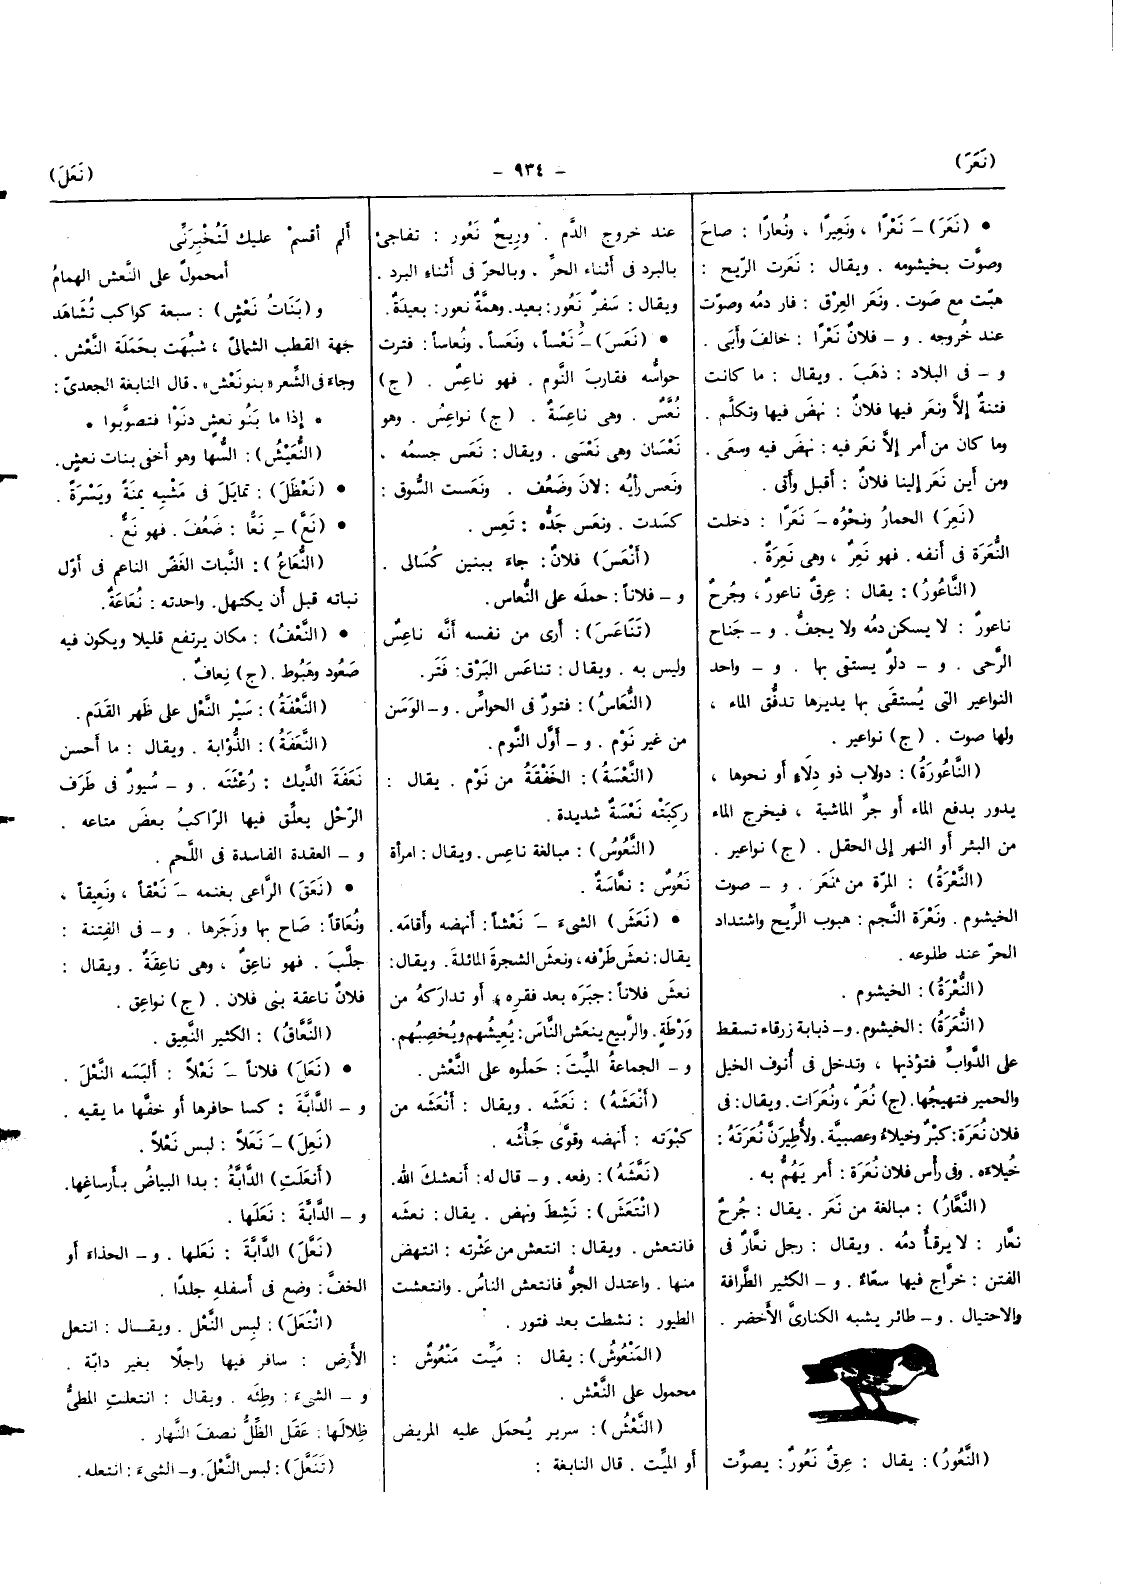 (نَعَرَ)
- ٩٣٤ -
(نَعَلَ)
• (نَعَرَ) ـَ نَعْرًا ، ونَعِيرًا ، ونُعارًا : صاحَ
وصوَّت بخيشومه . ويقال : نَعَرت الرّيح :
هبّت مع صَوت . ونَعَر العِرْق : فار دمُه وصوّت
عند خُروجه . و – فلانٌ نَعْرًا : خالفَ وأَبَى .
و – فى البلاد : ذهَبَ . ويقال : ما كانت
فتنةٌ إلاَّ ونَعر فيها فلانٌ : نهضَ فيها وتكلَّم .
وما كان من أمر إلاَّ نعَر فيه : نهضَ فيه وسعَى .
ومن أين نَعَر إلينا فلانٌ : أقبل وأتَى .
(نَعِرَ) الحمارُ ونحْوُه ـَ نَعَرًا : دخلت
النُّعَرَة فى أنفه . فهو نَعِرٌ ، وهى نَعِرَةٌ .
(النَّاعُورُ) : يقال : عِرقٌ ناعورٌ ، وجُرحٌ
ناعورٌ : لا يسكن دمُه ولا يجفُّ . و – جَناح
الرَّحى . و – دلوٌ يستقى بها . و – واحد
النواعير التى يُستقَى بها يديرها تدفُّق الماء ،
ولها صوت . (ج) نواعير .
(النَّاعُورَةُ) : دولاب ذو دِلَاءٍ أو نحوها ،
يدور بدفع الماء أو جرِّ الماشية ، فيخرج الماء
من البئر أو النهر إلى الحقل . (ج) نواعير .
(النَّعْرَةُ) : المرّة من نَعَر . و – صوت
الخيشوم . ونَعْرَة النَّجم : هبوب الرِّيح واشتداد
الحرّ عند طلوعه .
(النُّعْرَةُ) : الخيشوم .
(النُّعَرَةُ) : الخيشوم . و– ذبابة زرقاء تسقط
على الدَّوابِّ فتؤذيها ، وتدخل فى أُنوف الخيل
والحمير فتهيجُها . (ج) نُعَرٌ ، ونُعَرَات . ويقال: فى
فلان نُعَرَة: كبْرٌ وخيلاءُ وعصبيَّة . ولأُطِيرَنَّ نُعَرَتَهُ :
خُيلاءه . وفى رأس فلان نُعَرَة : أمر يَهُمُّ به .
(النَّعَّارُ) : مبالغة من نَعَر . يقال : جُرحٌ
نعَّار : لا يرقأُ دمُه . ويقال : رجل نعَّارٌ فى
الفتن : خرَّاج فيها سعَّاءٌ . و – الكثير الطَّرافة
والاحتيال . و– طائر يشبه الكنارىَّ الأخضر .
(النَّعُورُ) : يقال : عِرقٌ نَعُورٌ : يصوِّت
عند خروج الدَّم . ورِيحٌ نَعُور : تفاجئ
بالبرد فى أثناء الحرِّ . وبالحرّ فى أثناء البرد .
ويقال : سَفرٌ نَعُور: بعيد. وهمَّةٌ نعور: بعيدَةٌ .
• (نَعَسَ) ـُ نَعْساً ، ونَعَساً ، ونُعاساً : فترت
حواسُّه فقاربَ النَّوم . فهو ناعِسٌ . (ج)
نُعَّسٌ . وهى ناعِسَةٌ . (ج) نواعِسُ . وهو
نَعْسَان وهى نَعْسَى . ويقال : نَعَس جسمُه ،
ونَعس رأيُه : لانَ وضَعُف . ونَعَست السُّوق :
كسَدت . ونعَس جَدُّه : تَعِس .
(أَنْعَسَ) فلانٌ : جاءَ ببنين كُسَالى .
و – فلاناً : حمَله على النُّعاس .
(تَنَاعَسَ) : أرى من نفسه أنَّه ناعِسٌ
وليس به . ويقال : تناعَس البَرْق : فَتَر .
(النُّعَاسُ) : فتورٌ فى الحواسِّ . و– الوَسَن
من غير نَوْم . و – أوَّل النَّوم .
(النَّعْسَةُ) : الخَفْقَةُ من نَوْم . يقال :
ركِبَتْه نَعْسَةٌ شديدة .
(النَّعُوسُ) : مبالغة ناعِس . ويقال : امرأة
نَعُوسٌ : نعَّاسَةٌ .
• (نَعَشَ) الشىءَ ـَ نَعْشاً : أنهضه وأقامَه .
يقال : نعش طَرْفه ، ونعش الشجرةَ المائلة . ويقال :
نعش فلاناً : جبَرَه بعد فقرِه ، أو تدارَكهُ من
وَرْطَةٍ . والرَّبيع ينعَش النَّاسَ : يُعِيشُهم ويُخصِبُهم .
و – الجماعةُ الميِّتَ : حَملوه على النَّعْش .
(أَنْعَشَهُ) : نَعَشَه . ويقال : أنْعَشَه من
كبْوَته : أنهضه وقوَّى جَأْشَه .
(نَعَّشَهُ) : رفعه . و – قال له : أنعشكَ الله .
(انْتَعَشَ) : نَشِطَ ونهض . يقال : نعشَه
فانتعش . ويقال : انتعش من عَثْرته : انتهض
منها . واعتدل الجوُّ فانتعش الناسُ . وانتعشت
الطيور : نشطت بعد فتور .
(المَنْعُوشُ) : يقال : مَيِّت مَنْعُوشٌ :
محمول على النَّعْش .
(النَّعْشُ) : سرير يُحمَل عليه المريض
أو الميِّت . قال النابغة :
ألم أقسمْ عليك لَتُخْبِرَنِّى
أمحمولٌ على النَّعش الهمامُ
و (بَنَاتُ نَعْشٍ) : سبعة كواكب تُشَاهَد
جهة القطب الشمالىّ ، شبِّهت بحَمَلَة النَّعْش .
وجاءَ فى الشِّعر «بنو نَعْش» . قال النابغة الجعدىّ :
• إذا ما بَنُو نعشٍ دنَوْا فتصوَّبوا •
(النُّعَيْشُ) : السُّها وهو أخفى بنات نعش .
• (نَعْظَلَ) : تمايَلَ فى مَشْيِه يمنَةً ويَسْرَةً .
• (نَعَّ) ـِ نَعًّا : ضَعُفَ . فهو نَعٌّ .
(النُّعَاعُ) : النَّبات الغَضّ الناعم فى أوّل
نباته قبل أن يكتهل . واحدته : نُعَاعَةٌ .
• (النَّعْفُ) : مكان يرتفع قليلا ويكون فيه
صَعُود وهَبُوط . (ج) نِعافٌ .
(النَّعْفَةُ) : سَيْر النَّعْل على ظَهر القَدَم .
(النَّعَفَةُ) : الذُّؤابة . ويقال : ما أحسن
نَعَفَةَ الدِّيك : رُعْثَتَه . و – سُيورٌ فى طَرَف
الرّحْل يعلَّق فيها الرّاكبُ بعضَ متاعه .
و – العقدة الفاسدة فى اللَّحم .
• (نَعَقَ) الرَّاعى بغنمه ـَ نَعْقاً ، ونَعِيقاً ،
ونُعَاقاً : صَاح بها وزَجَرها . و – فى الفِتنة :
جلَّبَ . فهو ناعِقٌ ، وهى ناعِقَةٌ . ويقال :
فلانٌ ناعقة بنى فلان . (ج) نواعِق .
(النَّعَّاقُ) : الكثير النَّعِيق .
• (نَعَلَ) فلاناً ـَ نَعْلاً : أَلبَسَه النَّعْلَ .
و – الدَّابَّةَ : كسا حافرها أو خفَّها ما يقيه .
(نَعِلَ) ـَ نَعَلاً : لبس نَعْلاً .
(أَنعَلَتِ) الدَّابَّةُ : بدا البياضُ بأرساغِها .
و – الدَّابَّةَ : نَعَلَها .
(نَعَّلَ) الدَّابَّةَ : نَعَلها . و – الحذاءَ أو
الخفَّ : وضع فى أسفلهِ جلدًا .
(انْتَعَلَ) : لبِس النَّعْل . ويقال : انتعل
الأَرضَ : سافر فيها راجلًا بغير دابّة .
و – الشىءَ : وطِئَه . ويقال : انتعلتِ المطىُّ
ظِلالَها : عَقَل الظِّلُّ نصفَ النَّهار .
(تَنَعَّلَ) : لبس النَّعْلَ . و– الشىءَ : انتعله .